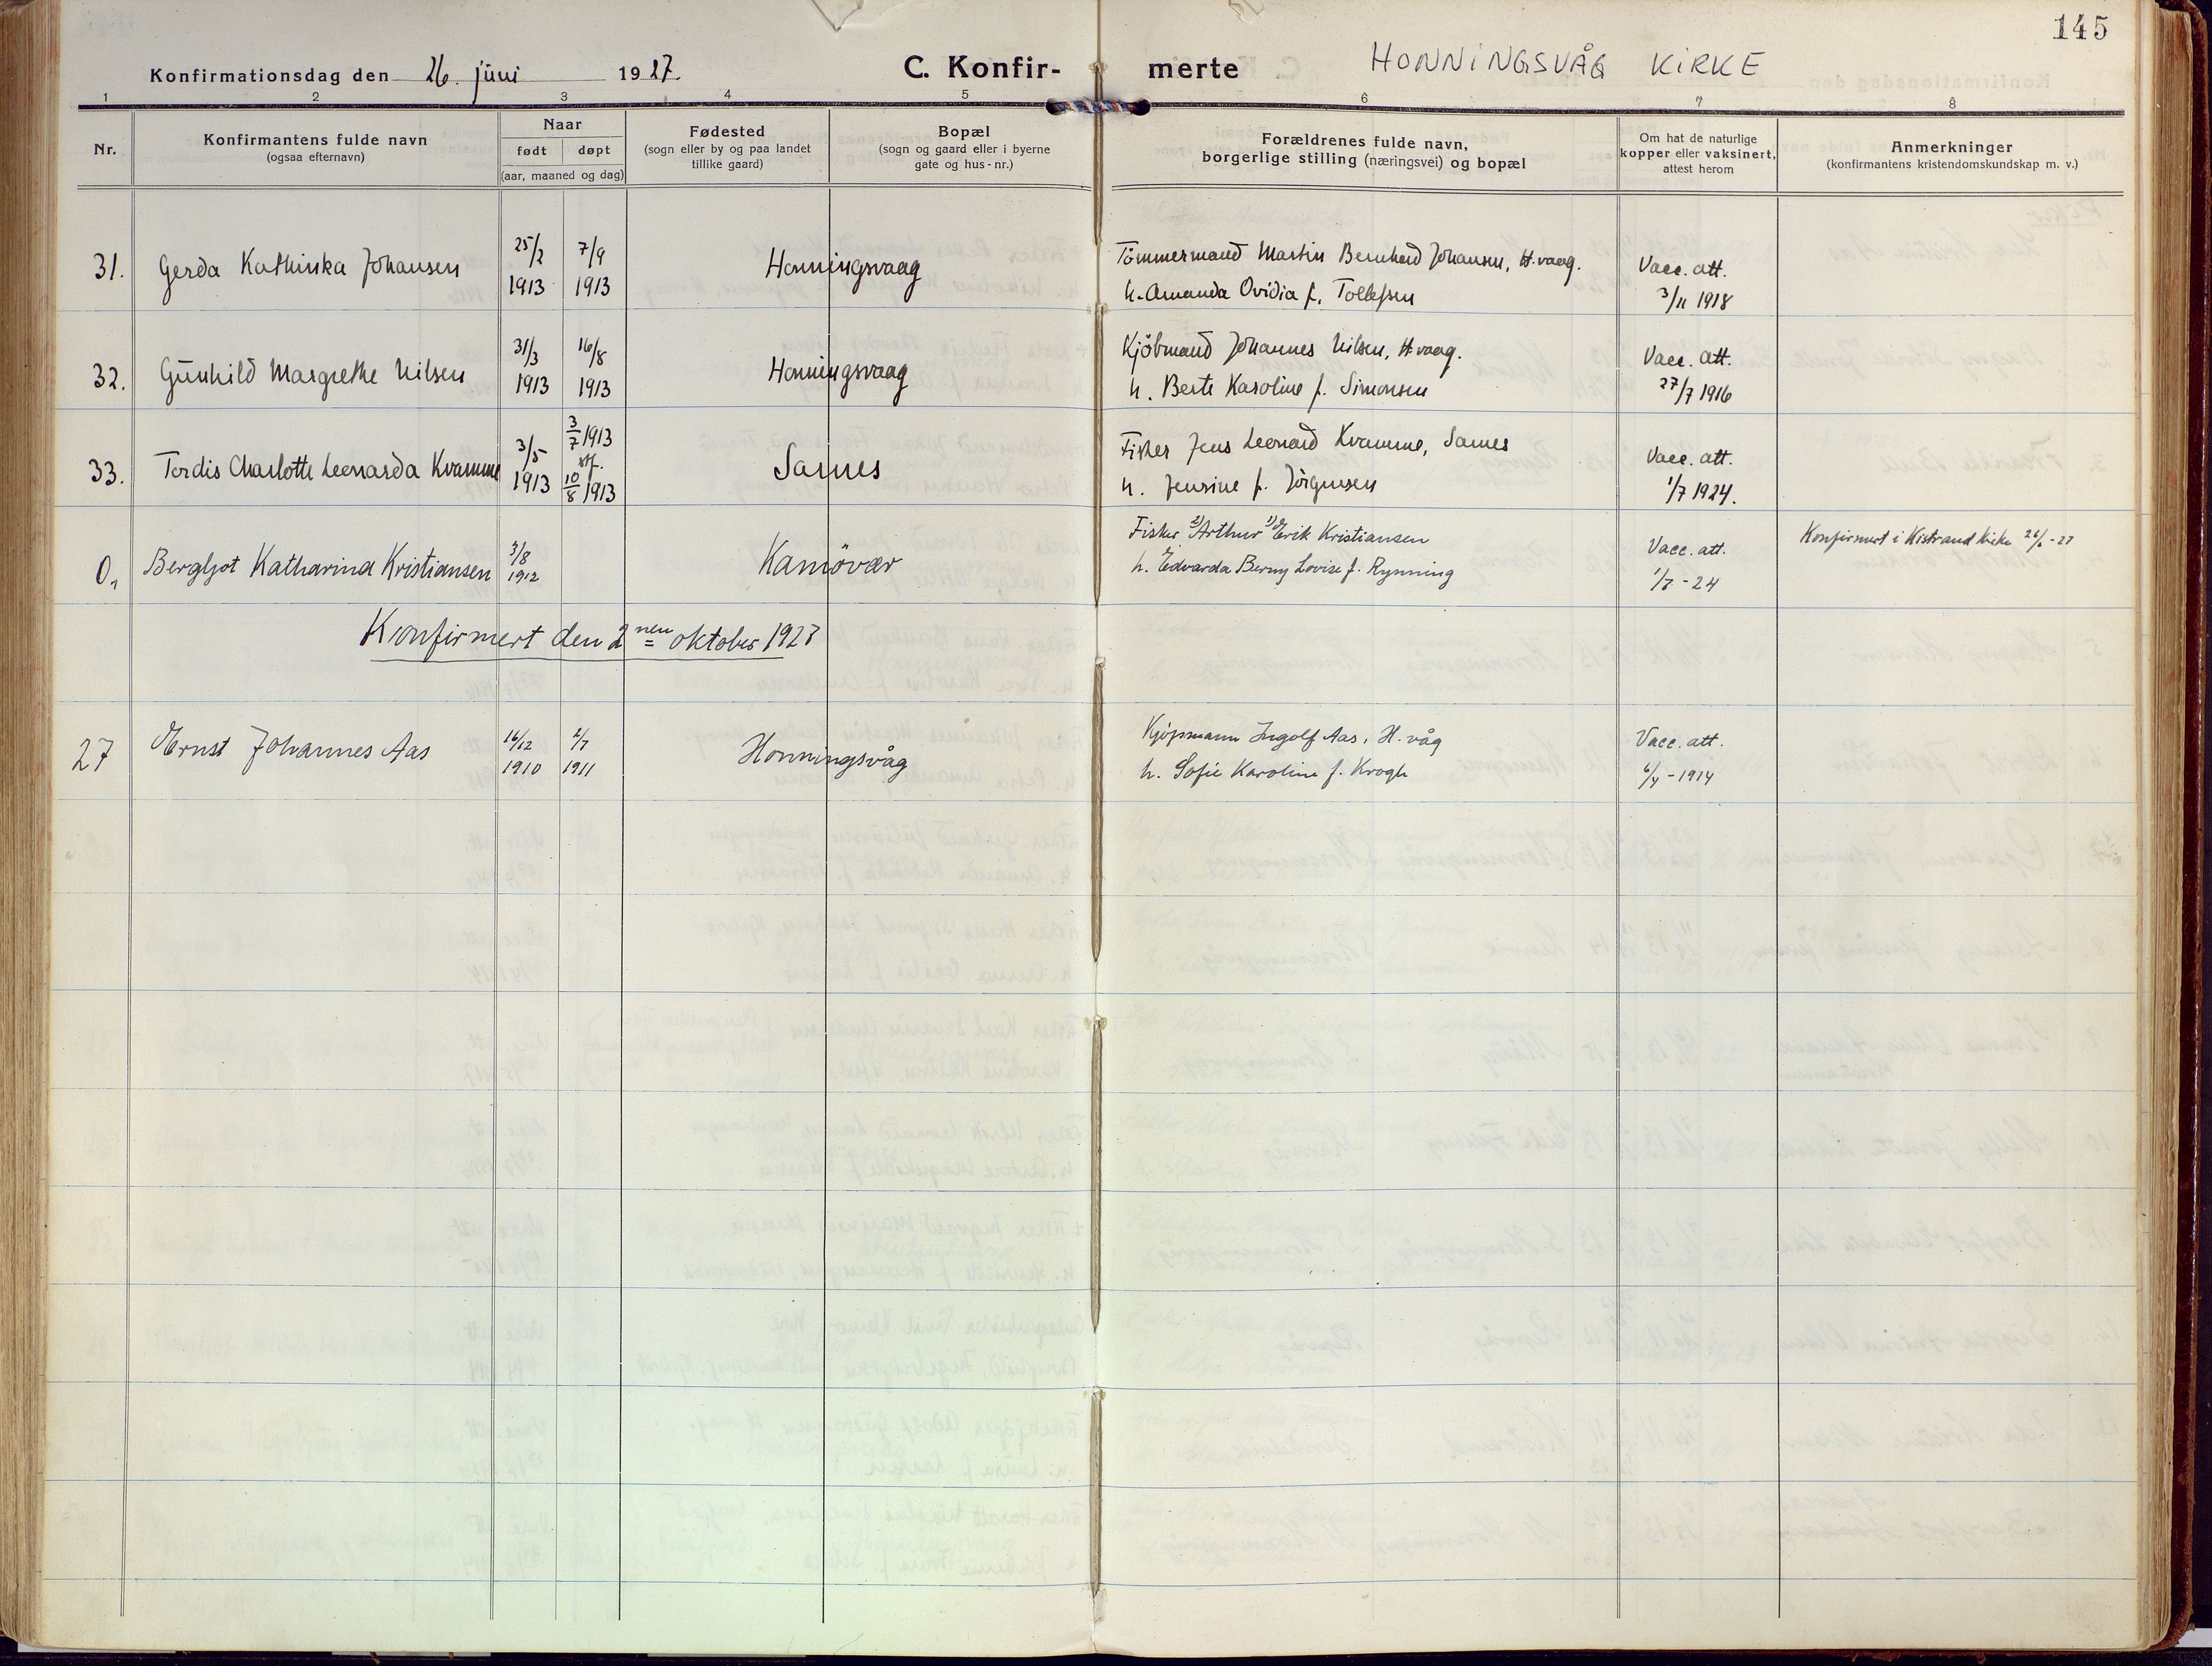 145
Konfirmationsdag den 26. juni 1927.
C. Konfir- merte
HONNINGSVÅG KIRKE
1 2 3 4 5 6 7 8
Nr.
Konfirmantens fulde navn
(ogsaa efternavn)
Naar
født døpt
(aar, maaned og dag)
Fødested
(sogn eller by og paa landet
tillike gaard)
Bopæl
(sogn og gaard eller i byerne
gate og hus-nr.)
Forældrenes fulde navn,
borgerlige stilling (næringsvei) og bopæl
Om hat de naturlige
kopper eller vaksinert,
attest herom
Anmerkninger
(konfirmantens kristendomskundskap m. v.)
31. Gerda Kathinka Johansen 25/2 1913 7/9 1913 Honningsvaag
Tömmermand Martin Bernhard Johansen, H.vaag.
h. Amanda Ovidia f. Tollefsen
Vacc. att.
3/11 1918
32. Gunhild Margrethe Nilsen 31/3 1913 16/8 1913 Honningsvaag
Kjöbmand Johannes Nilsen, H.vaag.
h. Berte Karoline f. Simonsen
Vacc. att.
27/7 1916
33. Tordis Charlotte Leonarda Kvamme 3/5 1913 3/7 1913 stf. 10/8 1913 Sarnes
Fisker Jens Leonard Kvamme, Sarnes
h. Jensine f. Jörgensen
Vacc. att.
1/7 1924.
0, Bergljot Katharina Kristiansen 3/8 1912 Kamövær
Fisker 2) Arthur 1) Erik Kristiansen
h. Edvarda Berny Lovise f. Rynning
Vacc. att.
1/7 - 24
Konfirmert i Kistrand kirke 26/6 - 27
Konfirmert den 2nen oktober 1927
27 Ernst Johannes Aas 16/12 1910 2/7 1911 Honningsvåg
Kjøpmann Ingolf Aas, H.våg
h. Sofie Karoline f. Krogh
Vacc. att.
6/4 - 1914